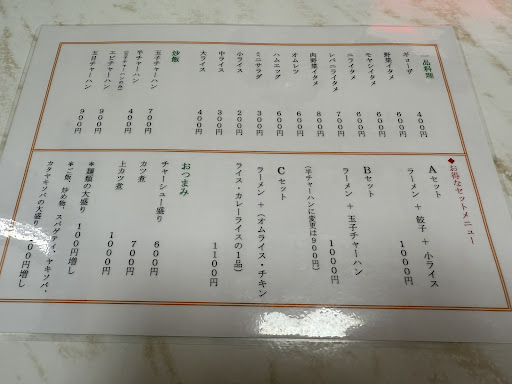 一品料理
ギョーザ 400円
野菜イタメ 600円
モヤシイタメ 600円
ニライタメ 600円
レバニライタメ 700円
肉野菜イタメ 800円
オムレツ 600円
ハムエッグ 600円
ミニサラダ 300円
小ライス 200円
中ライス 300円
大ライス 400円
炒飯
玉子チャーハン 700円
半チャーハン 400円
エビチャーハン 900円
五目チャーハン 900円
◆お得なセットメニュー
Aセット
ラーメン + 餃子 + 小ライス 1000円
Bセット
ラーメン + 玉子チャーハン 1000円
(半チャーハンに変更は900円)
Cセット
ラーメン + (オムライス・チキン
ライス・カレーライスの1品) 1100円
おつまみ
チャーシュー盛り 600円
カツ煮 700円
上カツ煮 1000円
*麺類の大盛り 100円増し
*ご飯、炒め物、スパゲティ、ヤキソバ、
カタヤキソバの大盛り 00円増し